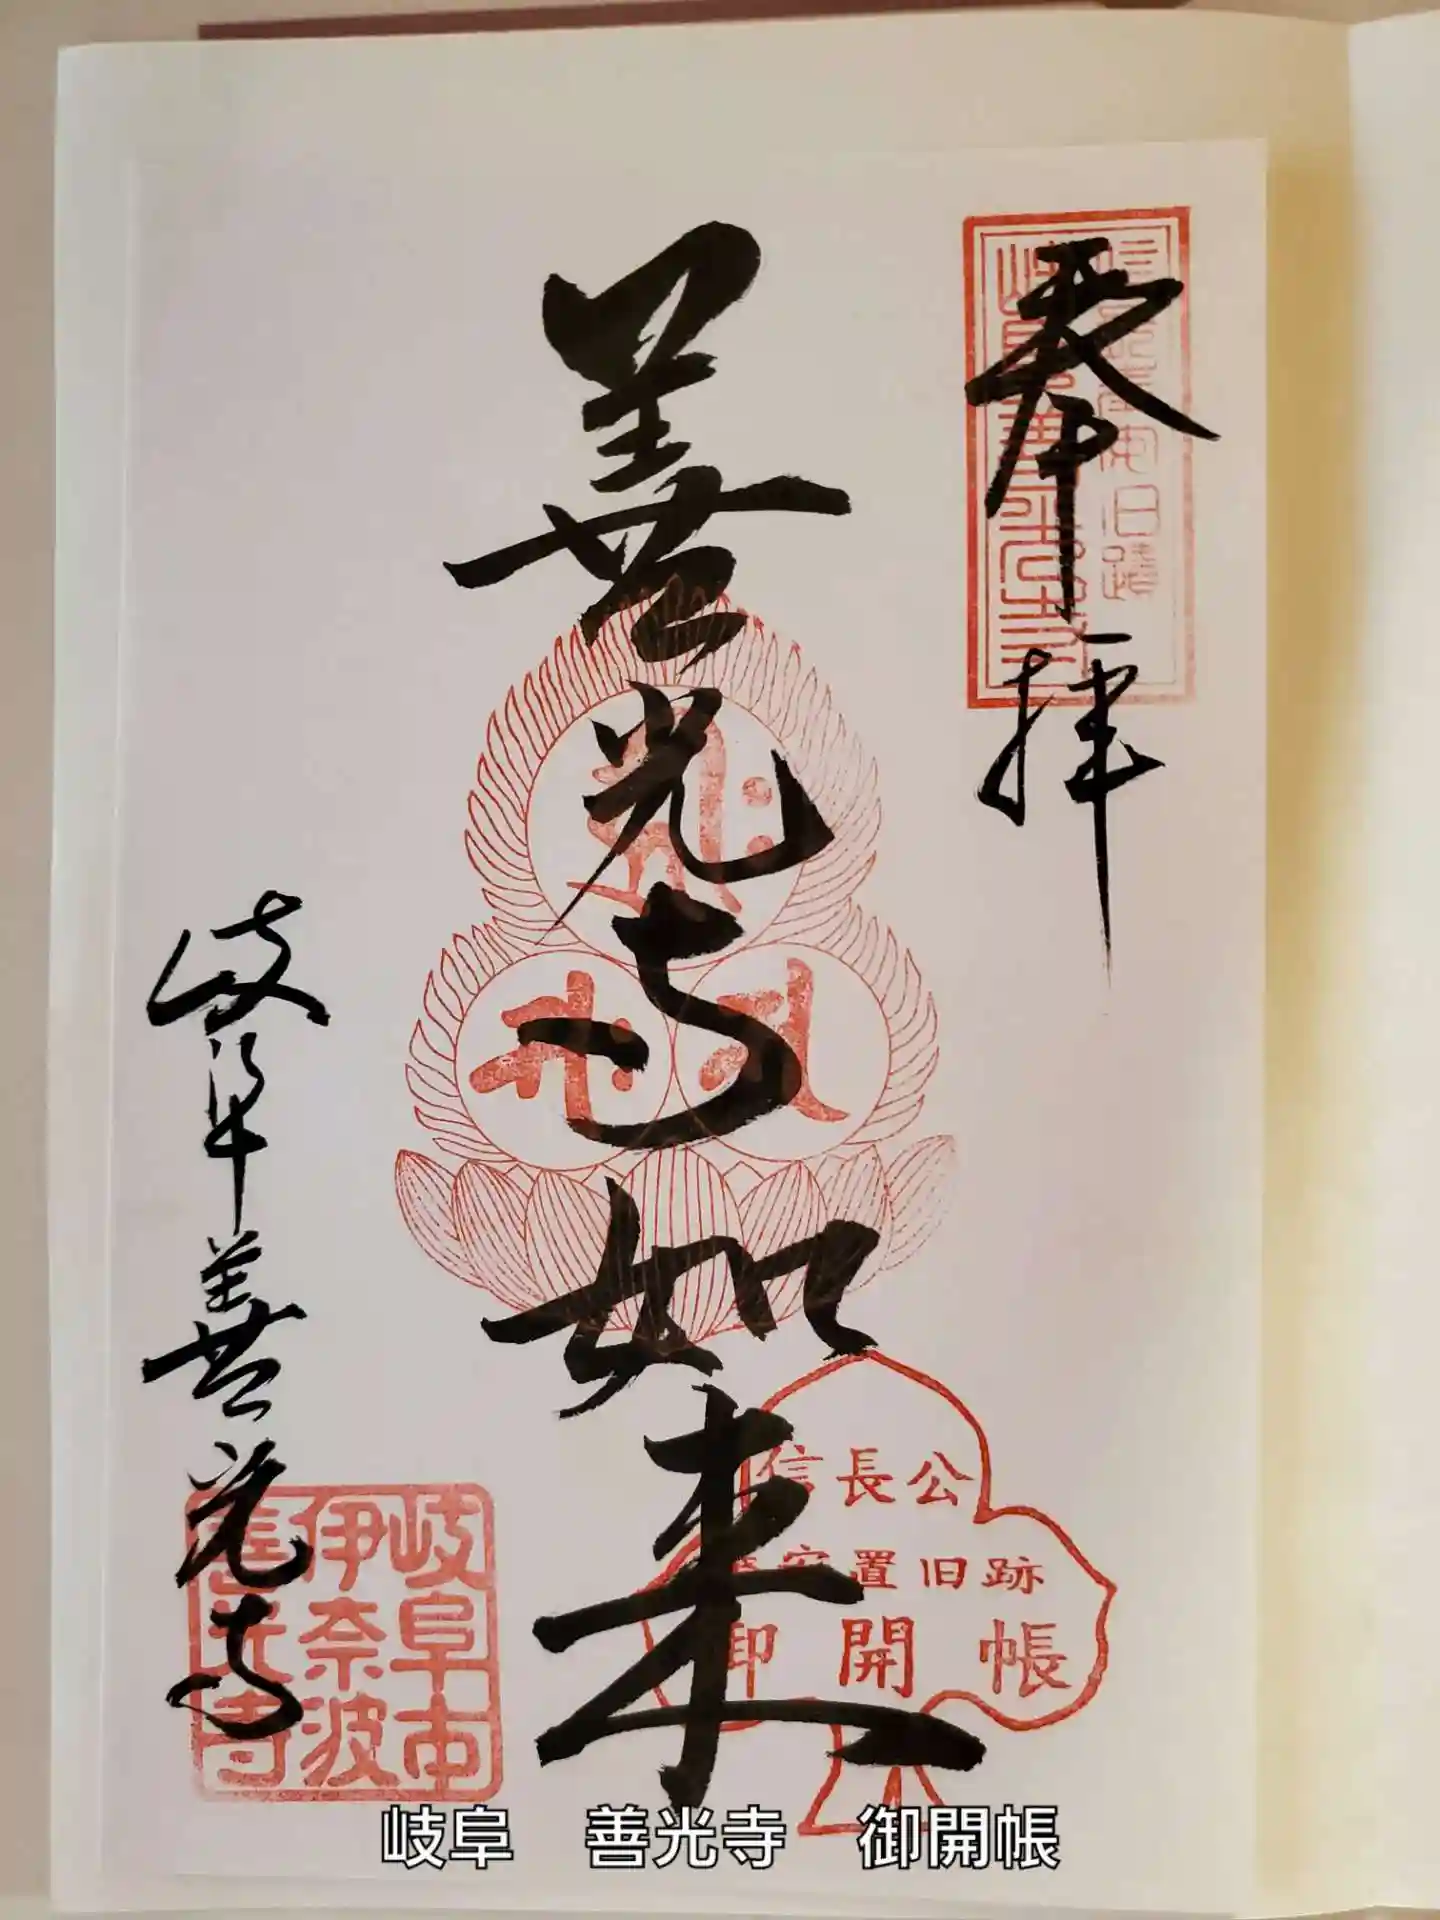 奉拝
善光寺如来
岐阜善光寺
岐阜善光寺
旧蹟
信長公
安置旧跡
御開帳
岐阜市
伊奈波
善光寺
岐阜　善光寺　御開帳